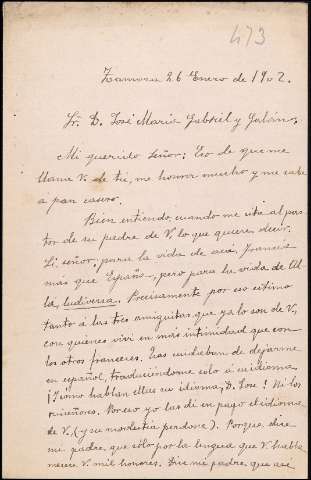 473
Zamora 26 Enero de 1902.
Sr. D. José María Gabriel y Galán.
Mi querido Señor: Eso de que me
llame V. de tú, me honra mucho y me sabe
a pan casero.
Bien entiendo, cuando me cita al pas
tor de su padre de V. lo que quiere decir.
Si señor, para la vida de acá, Francia
más que España, pero para la vida de Al
lá, . Precisamente por eso estimo
tanto á las tres amiguitas que ya lo son de V,
con quienes viví en más intimidad que con
los otros franceses. Ellas cuidaban de dejarme
en español, traduciéndome solo á su idioma,
¡Y cómo hablan ellas su idioma, D. José! Ni los
ruiseñores. Por eso yo las dí en pago el idioma
de V. (y su modestia perdone). Porque, dice
mi padre, que sólo por la lengua que V. habla
merece V. mil honores. Dice mi padre, que así